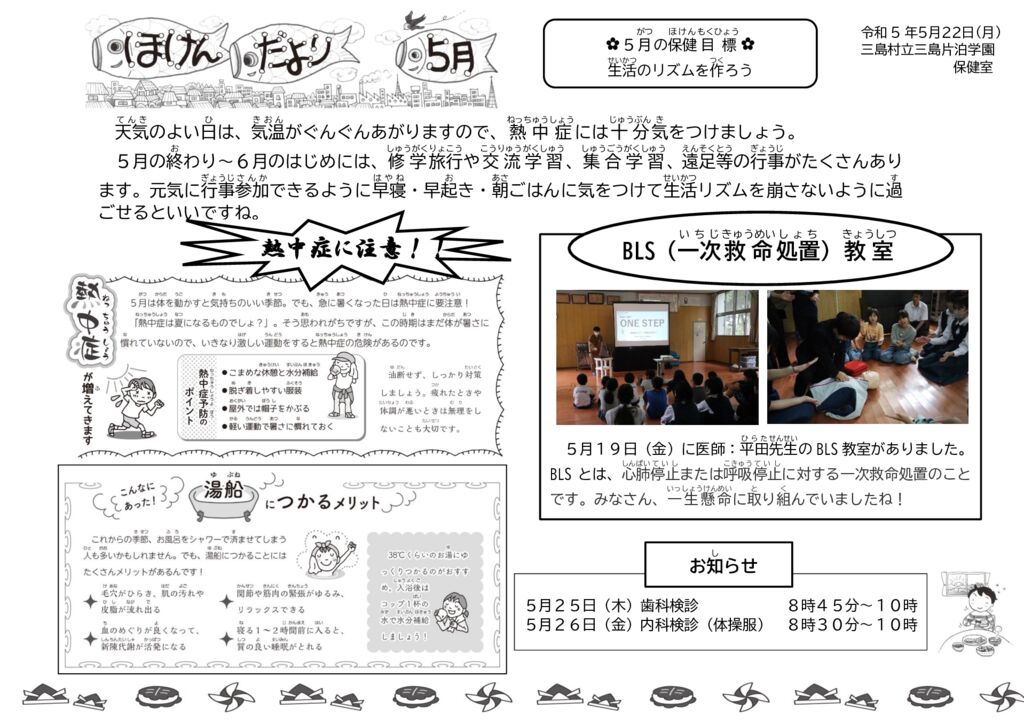 ほけんだより 5月
✿５月の保健目標✿
生活のリズムを作ろう
令和５年5月22日(月)
三島村立三島片泊学園
保健室
天気のよい日は、気温がぐんぐんあがりますので、熱中症には十分気をつけましょう。
５月の終わり～６月のはじめには、修学旅行や交流学習、集合学習、遠足等の行事がたくさんあり
ます。元気に行事参加できるように早寝・早起き・朝ごはんに気をつけて生活リズムを崩さないように過
ごせるといいですね。
熱中症に注意！！
熱中症が増えてきます
５月は体を動かすと気持ちのいい季節。でも、急に暑くなった日は熱中症に要注意！
「熱中症は夏になるものでしょ？」。そう思われがちですが、この時期はまだ体が暑さに
慣れていないので、いきなり激しい運動をすると熱中症の危険があるのです。
熱中症予防の
ポイント
●こまめな休憩と水分補給
●脱ぎ着しやすい服装
●屋外では帽子をかぶる
●軽い運動で暑さに慣れておく
油断せず、しっかり対策
しましょう。疲れたときや
体調が悪いときは無理をし
ないことも大切です。
こんなに
あった！
湯船につかるメリット
これからの季節、お風呂をシャワーで済ませてしまう
人も多いかもしれません。でも、湯船につかることには
たくさんメリットがあるんです！
毛穴がひらき、肌の汚れや
皮脂が流れ出る
関節や筋肉の緊張がゆるみ、
リラックスできる
血のめぐりが良くなって、
新陳代謝が活発になる
寝る１～２時間前に入ると、
質の良い睡眠がとれる
38℃くらいのお湯にゆ
っくりつかるのがおすす
め、入浴後は
コップ１杯の
水で水分補給
しましょう！
BLS（一次救命処置）教室
ONE STEP
５月１９日（金）に医師：平田先生の BLS 教室がありました。
BLS とは、心肺停止または呼吸停止に対する一次救命処置のこと
です。みなさん、一生懸命に取り組んでいましたね！
お知らせ
５月２５日（木）歯科検診　８時４５分～１０時
５月２６日（金）内科検診（体操服）　８時３０分～１０時